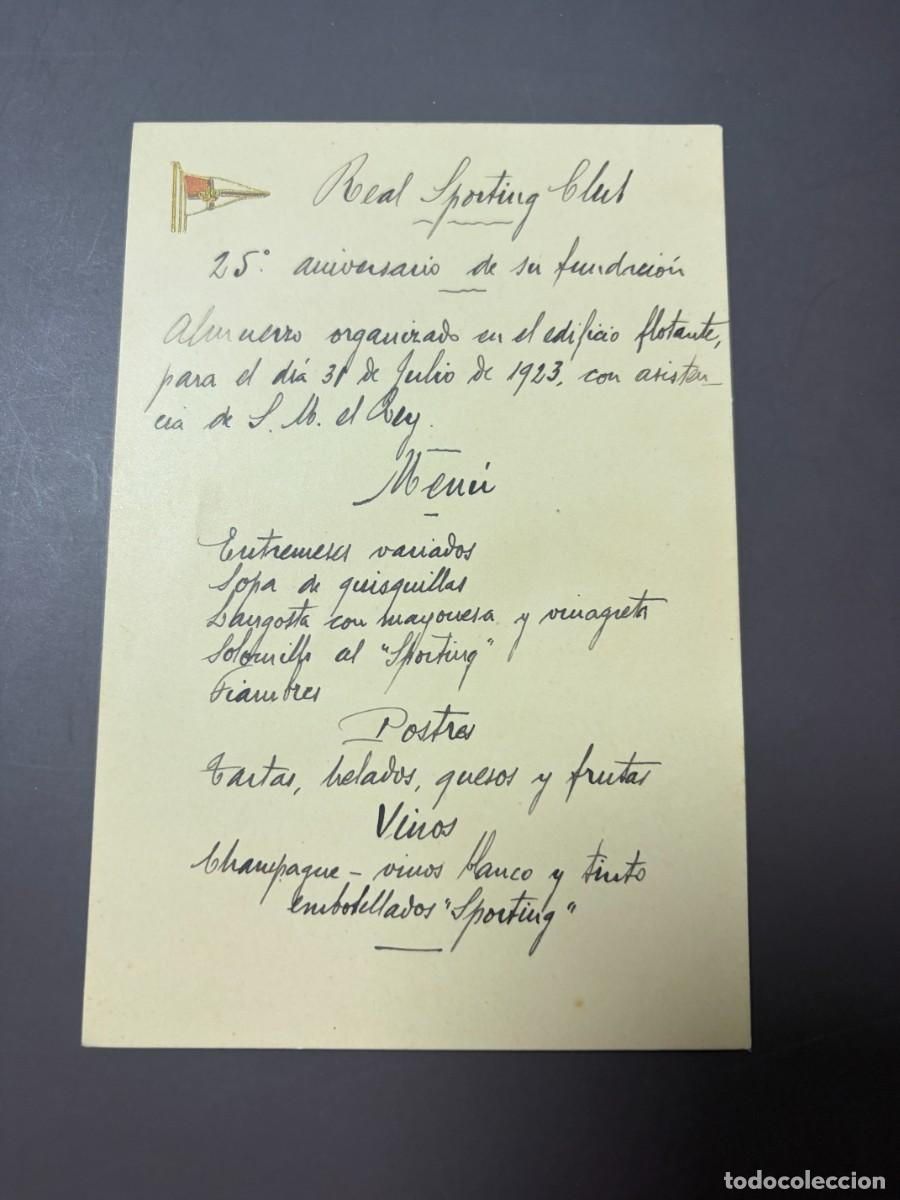 Real Sporting Club
25º aniversario de su fundación
Almuerzo organizado en el edificio flotante,
para el día 31 de Julio de 1923, con asisten-
cia de S. M. el Rey.
Menú
Entremeses variados
Sopa de quisquillas
Langosta con mayonesa y vinagreta
Solomillo al "Sporting"
Fiambres
Postres
Tartas, helados, quesos y frutas
Vinos
Champagne - vinos blanco y tinto
embotellados "Sporting"
todocoleccion